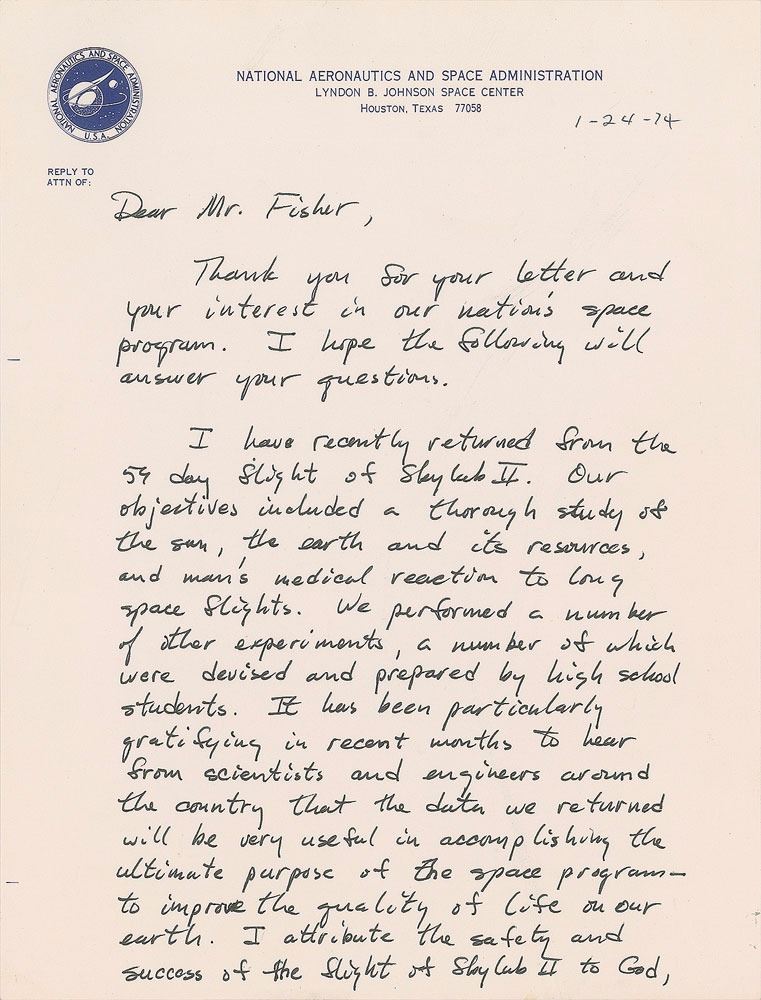 NATIONAL AERONAUTICS AND SPACE ADMINISTRATION
U.S.A.
NATIONAL AERONAUTICS AND SPACE ADMINISTRATION
LYNDON B. JOHNSON SPACE CENTER
HOUSTON, TEXAS 77058
1-24-74
REPLY TO
ATTN OF:
Dear Mr. Fisher,
Thank you for your letter and
your interest in our nation's space
program. I hope the following will
answer your questions.
I have recently returned from the
59 day flight of Skylab II. Our
objectives included a thorough study of
the sun, the earth and its resources,
and man's medical reaction to long
space flights. We performed a number
of other experiments, a number of which
were devised and prepared by high school
students. It has been particularly
gratifying in recent months to hear
from scientists and engineers around
the country that the data we returned
will be very useful in accomplishing the
ultimate purpose of the space program—
to improve the quality of life on our
earth. I attribute the safety and
success of the flight of Skylab II to God,